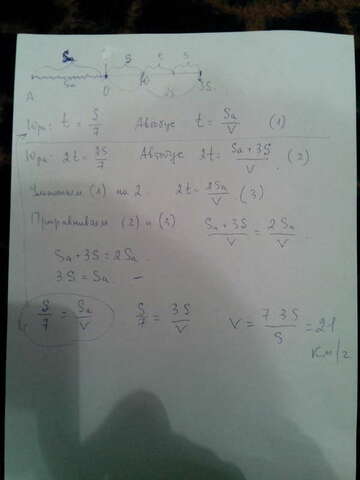 Sa S S S
Sa 0 Ю 2S 3S
А
Юра: t = S/7 Автобус t = Sa/V (1)
Юра: 2t = 2S/7 Автобус 2t = Sa + 3S/V (2)
Умножаем (1) на 2. 2t = 2Sa/V (3)
Приравниваем (2) и (3) Sa + 3S/V = 2Sa/V
Sa + 3S = 2Sa
3S = Sa
S/7 = Sa/V S/7 = 3S/V V = 7 3S/S = 21
км/г